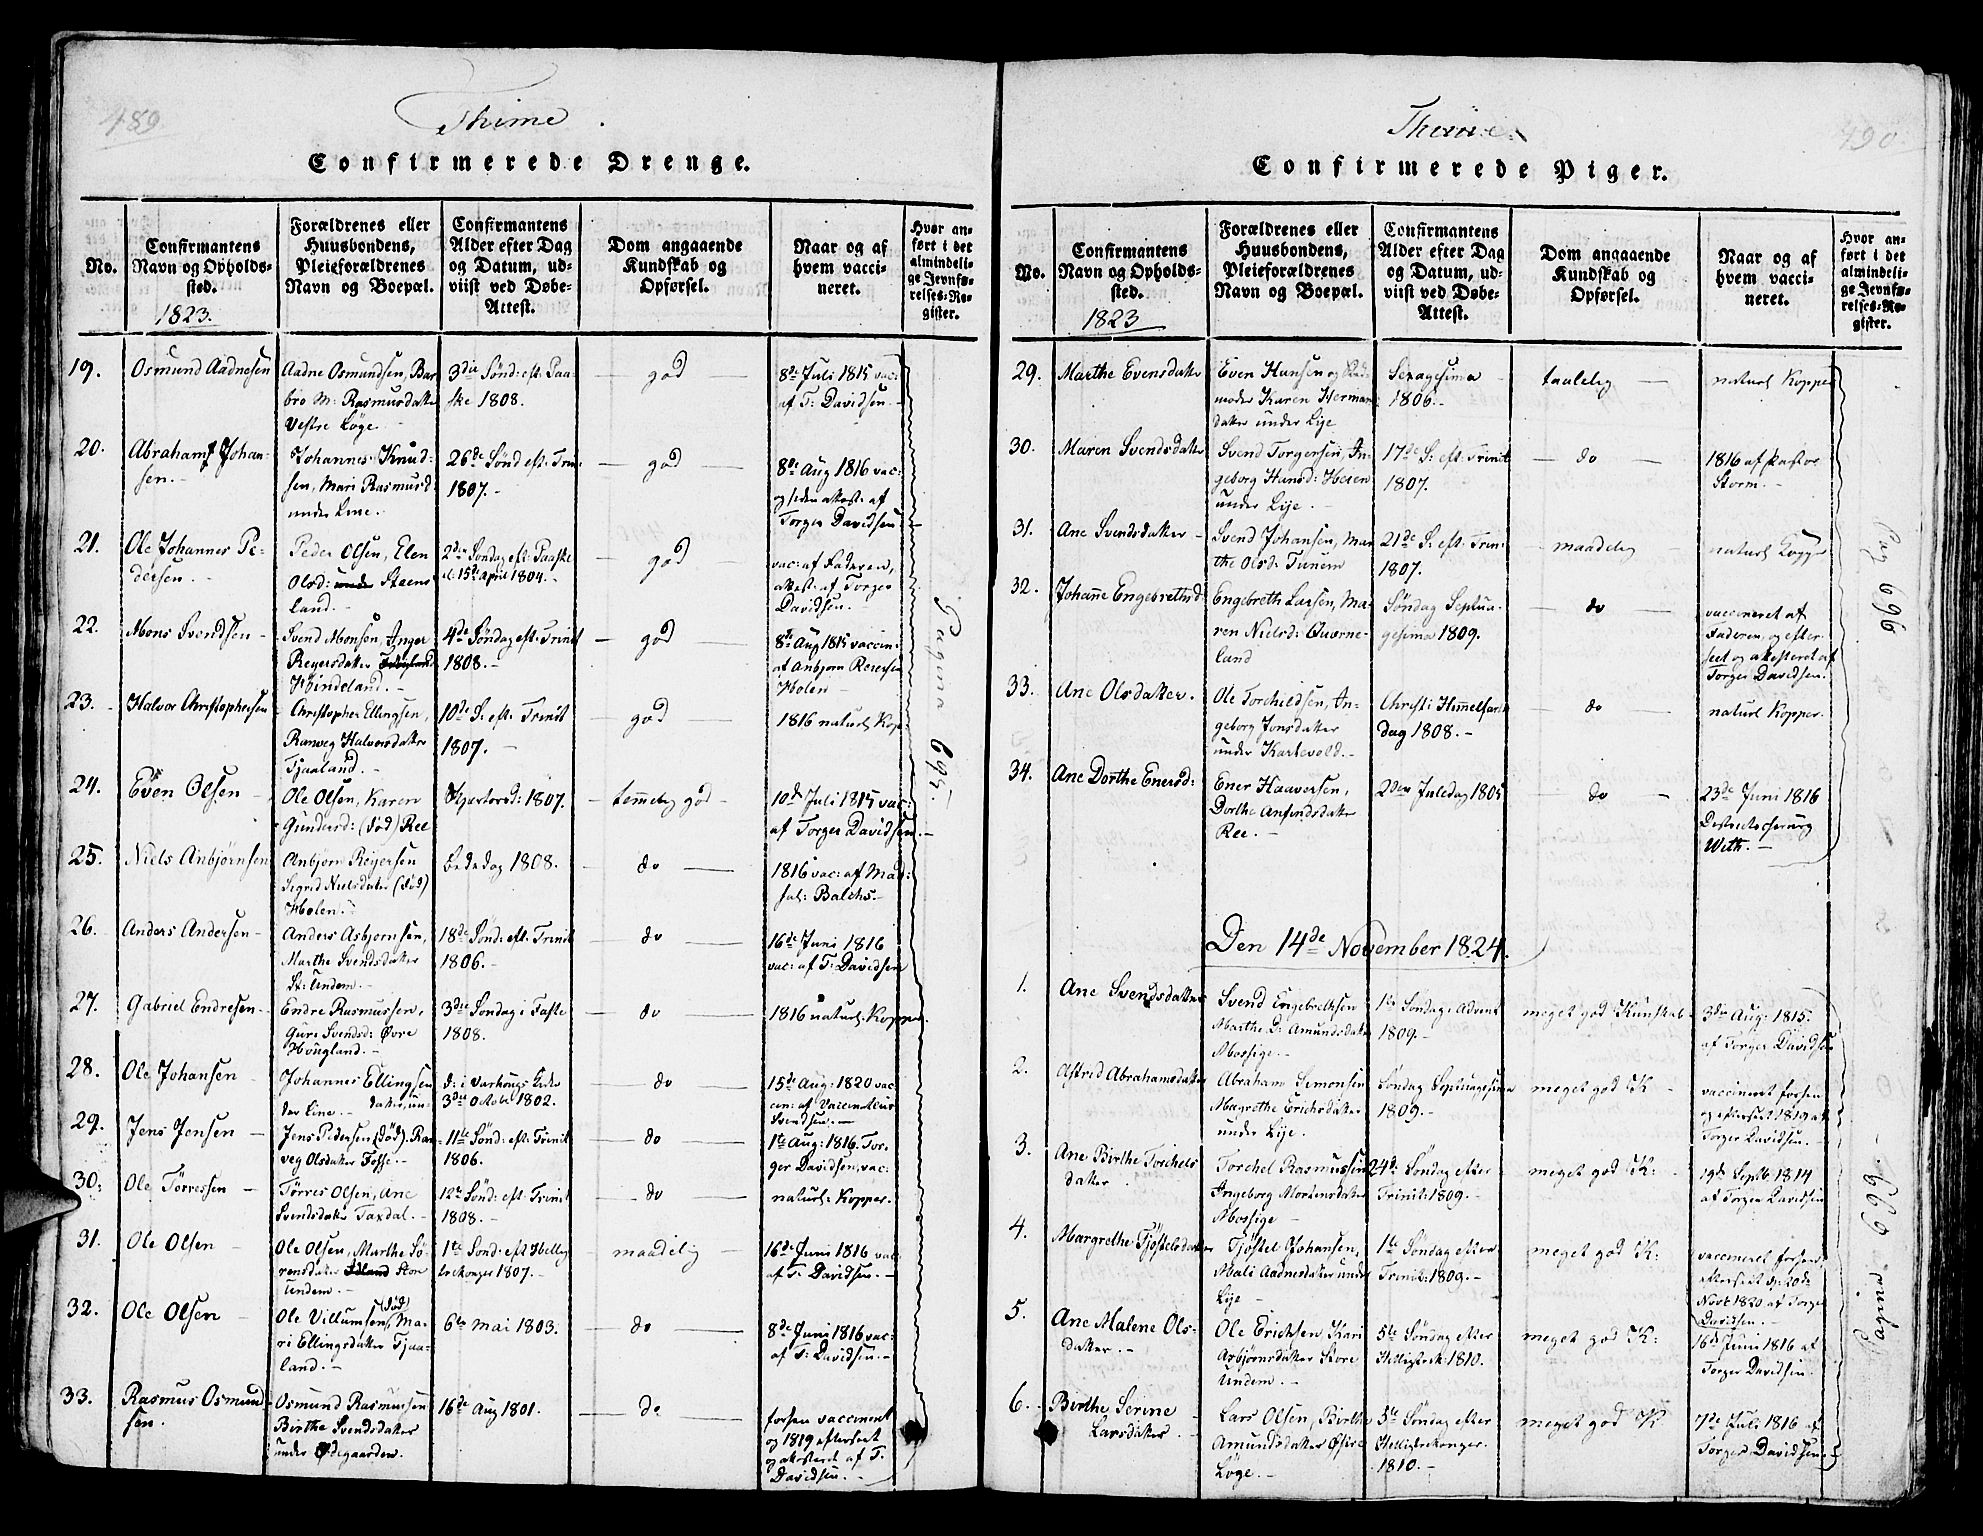 489
Thime
Confirmerede Drenge.
No.
Confirmantens
Navn og Opholds-
sted.
1823.
Forældrenes eller
Huusbondens,
Pleieforældrenes
Navn og Boepæl.
Confirmantens
Alder efter Dag
og Datum, ud-
viist ved Døbe-
Attest.
Dom angaaende
Kundskab og
Opførsel.
Naar og af
hvem vacci-
neret.
Hvor an-
ført i det
almindeli-
ge Jevnfø-
relses-Re-
gister.
19.
Osmund Aadnesen
Aadne Osmundsen, Bar
bro M: Rasmusdatter
Vestre Løge
3die Sønd: eft: Paa-
ske 1808.
god
8de Juli 1815 vac:
af T: Davidsen.
20.
Abraham Johan-
sen.
Johannes Knud-
sen, Mari Rasmusd:
under Line.
26de Sønd eft: Trin:
1807.
god
8de Aug 1816 vac:
og siden attest: af
Torger Davidsen.
21.
Ole Johannes Pe-
dersen.
Peder Olsen, Elen
Olsd: under Steens
land.
2den Søndag eft: Paaske
d: 15de April 1804.
god
vac: af Faderen,
attest: af Torger
Davidsen.
22.
Mons Svendsen
Svend Monsen, Inger
Reyersdatter
Høineland.
4de Søndag eft: Trinit
1808.
god
8de Aug 1815 vaccin:
af Anbjørn Reiersen
Holen
23.
Halvor Christophersen
Christopher Ellingsen,
Ranveg Halvorsdatter
Tjaaland.
10de S: eft: Trinit
1807.
god
1816 naturl: Kop:
24.
Even Olsen
Ole Olsen, Karen
Gundersd: (død) Ree
Skjærtorsd: 1807.
temmelig god
10de Juli 1815 vac:
af Torger Davidsen.
25.
Niels Anbjørnsen
Anbjørn Reyersen
Sigrid Nielsdatter (død)
Holen.
Bededag 1808.
do
1816 vac: af Mad:
sal: Balchs.
26.
Anders Andersen
Anders Asbjørnsen,
Marthe Svendsdatter
St: Undem.
18de Sønd: eft: Trinit
1806.
do
16de Juni 1816
vac: af T: Davidsen
27.
Gabriel Endresen
Endre Rasmussen,
Guri Svendsd: Øvre
Høugland.
3die Søndag i Faste
1808.
do
1816 naturl: Kopper.
28.
Ole Johansen
Johannes Ellingsen
der Line. datter, un-
d: i Varhougs Gield
3die Octobr 1802.
do
15de Aug: 1820 vac
cin: af Vaccinateur
Svendsen.
29.
Jens Jensen
Jens Pedersen (død) Ran
veg Olsdatter Fosse.
11te Sønd: eft: Trinit
1806.
do
1te Aug: 1816 Tor-
ger Davidsen, vac:
30.
Ole Tørressen
Tørres Olsen, Ane
Svendsdatter Taxdal.
12te Sønd: eft: Trinit
1808.
do
naturl: Kopper.
31.
Ole Olsen
Ole Olsen, Marthe Sø-
rensdatter Store
Undem.
1te Sønd: eft Hellig
trekonger 1807.
maadelig
16de Juni 1816 vac:
af T: Davidsen.
32.
Ole Olsen
Ole Villumsen (død), Ma-
ri Ellingsdatter Tjaa-
land.
6te Mai 1803.
do
8de Juni 1816 vac:
af T: Davidsen.
33.
Rasmus Osmund
sen.
Osmund Rasmussen
Birthe Svendsdatter
under Ødegaarden.
16de Aug 1801.
do
forsøn vaccineret
og 1819 efterseet
og attesteret af T.
Davidsen.
Pagina 695.
490
Thime
Confirmerede Piger.
No.
Confirmantens
Navn og Opholds-
sted.
1823
Forældrenes eller
Huusbondens,
Pleieforældrenes
Navn og Boepæl.
Confirmantens
Alder efter Dag
og Datum, ud-
viist ved Døbe-
Attest.
Dom angaaende
Kundskab og
Opførsel.
Naar og af
hvem vacci-
neret.
Hvor an-
ført i det
almindeli-
ge Jevnfø-
relses-Re-
gister.
29.
Marthe Evensdatter
Even Hansen og
moder Karen Herman
datter under Lije
Sexagesima
1806.
taalelig
naturl Kopper
30.
Maren Svendsdatter
Svend Torgersen, In-
geborg Hansd: Heien
under Lije.
17de S: eft: Trinit
1807.
do
1816 af Pastor
Storm.
31.
Ane Svendsdatter
Svend Johansen, Mar
the Olsd: Tunem
21de S: eft: Trin-
1807.
maadelig
naturl Kopp
32.
Johanne Engebrethsd:
Engebreth Larsen, Ma-
ren Nielsd: Qværne-
land
Søndag Septua-
gesima 1809.
do
vaccineret af
Faderen, og efter-
seet og attesteret af
Torger Davidsen.
33.
Ane Olsdatter.
Ole Torchildsen, In-
geborg Jonsdatter
under Kartevold.
Christi Himmelfarts
dag 1808.
do
naturl Kopper.
34.
Ane Dorthe Enersd:
Ener Haaversen,
Dorthe Anfindsdatter
Ree.
2den Juledag 1805
do
23de Juni 1816
Districtschirurg
With.
Pag 696
Den 14de November 1824.
1.
Ane Svendsdatter
Svend Engebrethsen
Marthe D: Amundsdatter
Mossige.
1te Søndag i Advent
1809.
meget god Kundskab
3die Aug: 1815.
af Torger Davidsen
2.
Astrid Abrahamsdatter
Abraham Simonsen
Magrethe Erichsdatter
under Lije.
Søndag Septuagesima
1809.
meget god K
vaccineret forsøn
og efterseet 1819 af
Torger Davidsen.
3.
Ane Birthe Torchels
datter
Torchel Rasmussen
Ingeborg Mortensdatter
Mossige
24de Søndag efter
Trinit: 1809.
meget god K:
19de Septb 1814
af Torger Davidsen
4.
Margrethe Tjøstelsdatter
Tjøstel Johansen,
Mali Aadnesdatter under
Lije
1te Søndag efter
Trinit: 1809.
meget god K:
vaccineret forsøn,
efterseet d: 20de
Novb 1820 af Torger
Davidsen.
5.
Ane Malene Ols-
datter.
Ole Erichsen, Kari
Asbjørnsdatter Store
Undem.
5te Søndag efter
Helligtrek: 1810.
meget god K:
16de Juni 1816 af
Torger Davidsen.
6.
Birthe Serine
Larsdatter
Lars Olsen, Birthe
Amundsdatter Østre
Løge.
5te Søndag efter
Helligtrekonger.
1810.
meget god K
7de Juli 1816 af
Torger Davidsen.
Pagina 699.